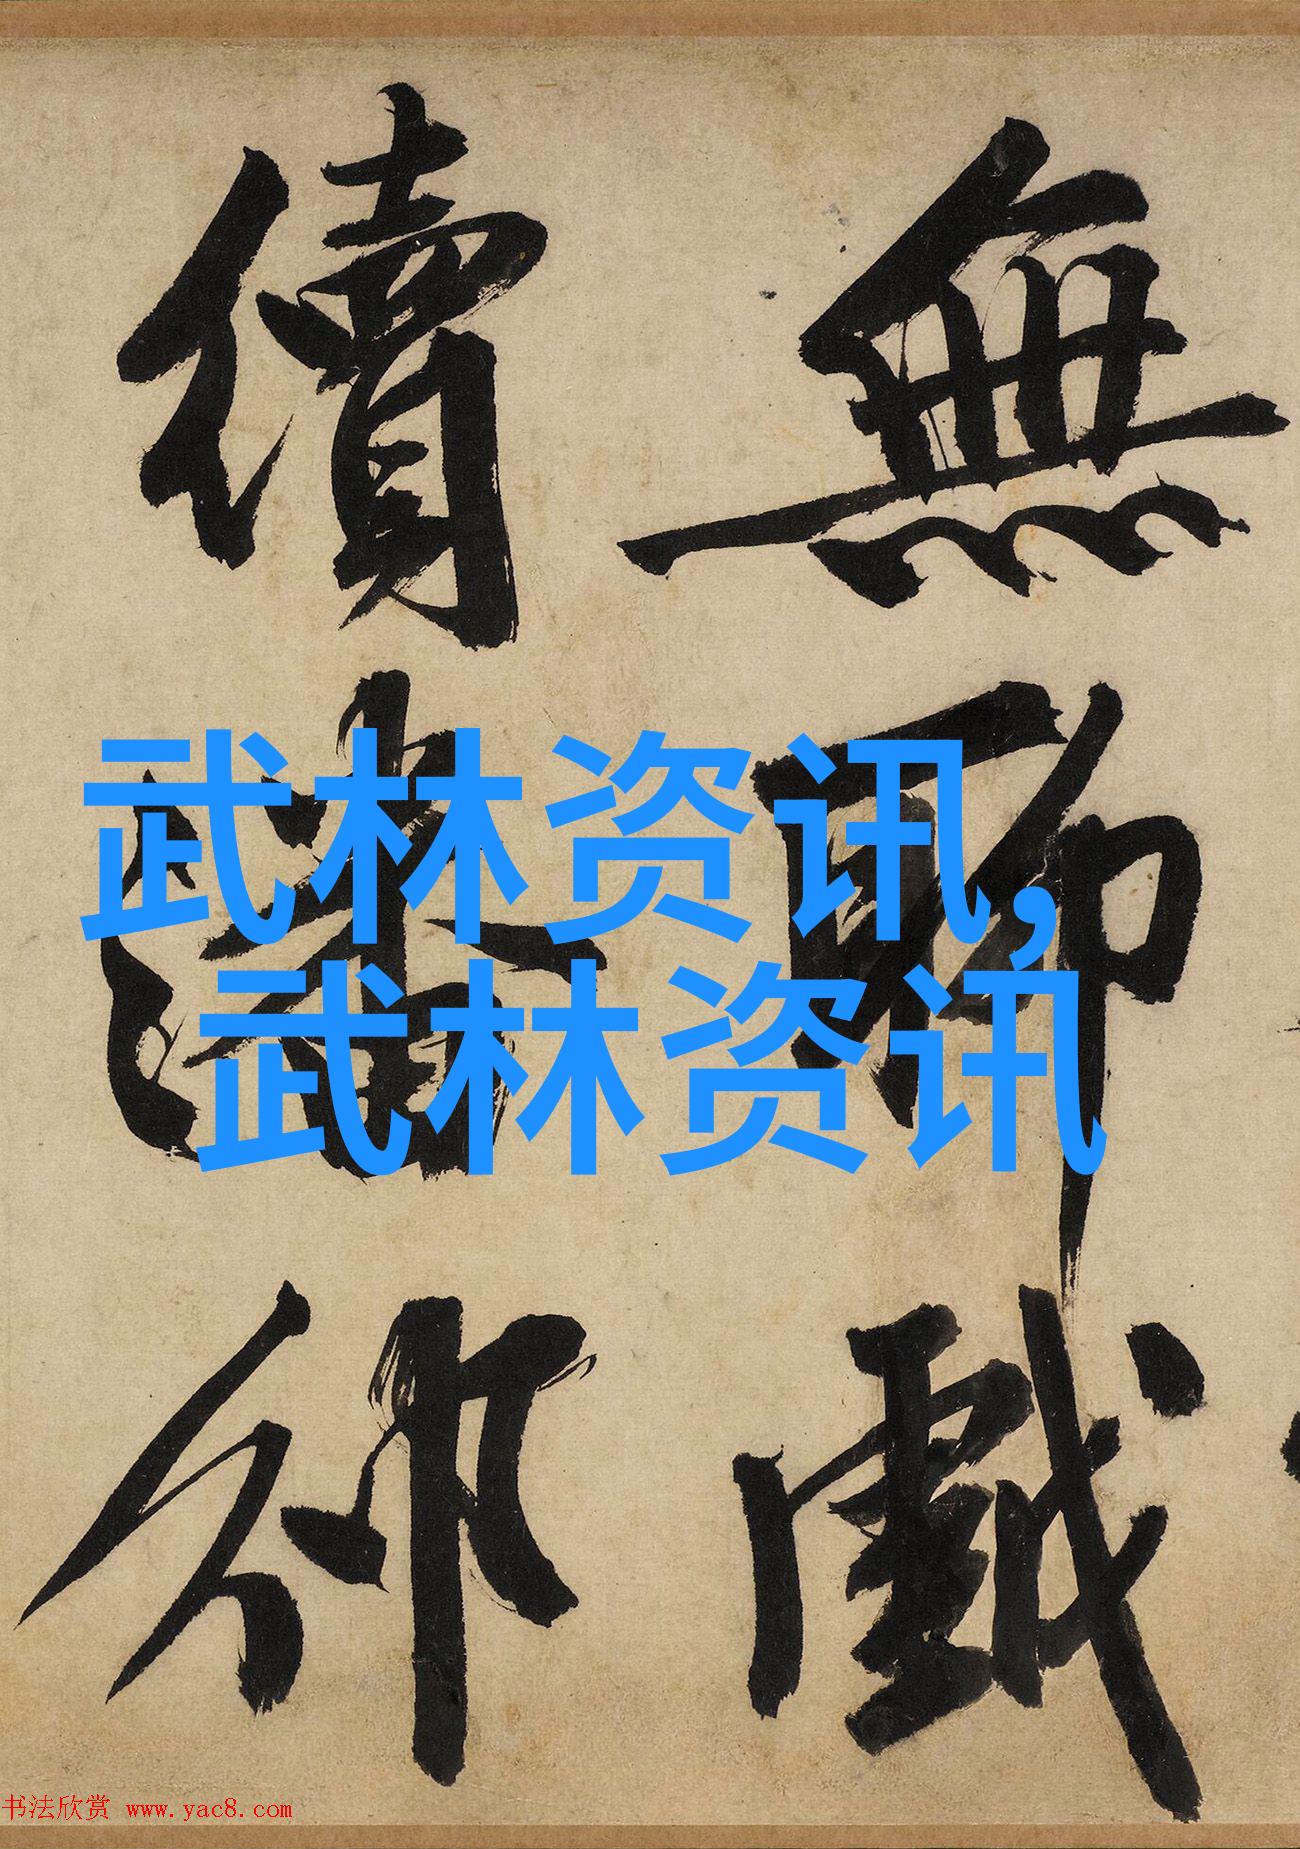 無聊戲
續潘邠
武林资讯,
武林资讯
书法欣赏 www.yac8.com